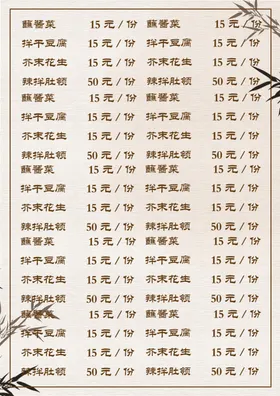 蘸醬菜 15 元 / 份 蘸醬菜 15 元 / 份
拌干豆腐 15 元 / 份 拌干豆腐 15 元 / 份
芥末花生 15 元 / 份 芥末花生 15 元 / 份
辣拌肚顿 50 元 / 份 辣拌肚顿 50 元 / 份
蘸醬菜 15 元 / 份 蘸醬菜 15 元 / 份
拌干豆腐 15 元 / 份 拌干豆腐 15 元 / 份
芥末花生 15 元 / 份 芥末花生 15 元 / 份
辣拌肚顿 50 元 / 份 辣拌肚顿 50 元 / 份
蘸醬菜 15 元 / 份 蘸醬菜 15 元 / 份
拌干豆腐 15 元 / 份 拌干豆腐 15 元 / 份
芥末花生 15 元 / 份 芥末花生 15 元 / 份
辣拌肚顿 50 元 / 份 辣拌肚顿 50 元 / 份
蘸醬菜 15 元 / 份 蘸醬菜 15 元 / 份
拌干豆腐 15 元 / 份 拌干豆腐 15 元 / 份
芥末花生 15 元 / 份 芥末花生 15 元 / 份
辣拌肚顿 50 元 / 份 辣拌肚顿 50 元 / 份
蘸醬菜 15 元 / 份 蘸醬菜 15 元 / 份
拌干豆腐 15 元 / 份 拌干豆腐 15 元 / 份
芥末花生 15 元 / 份 芥末花生 15 元 / 份
辣拌肚顿 50 元 / 份 辣拌肚顿 50 元 / 份